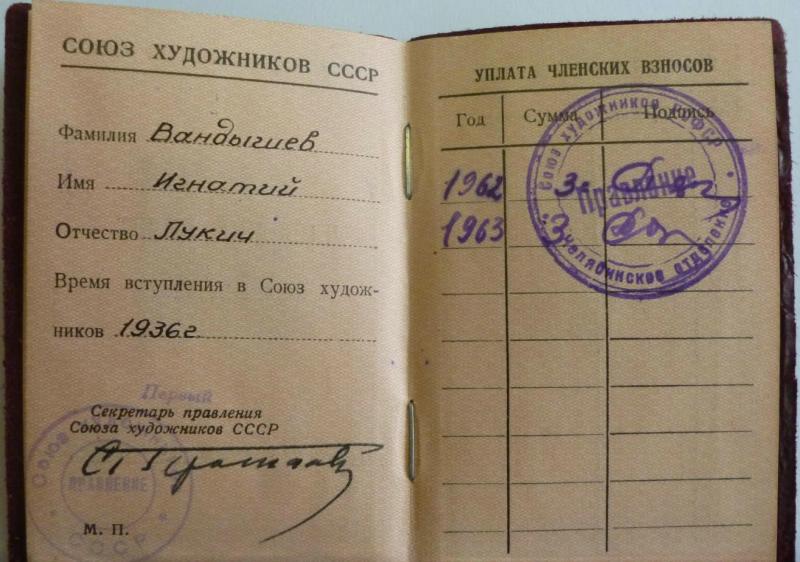 СОЮЗ ХУДОЖНИКОВ СССР
Фамилия Вандышев
Имя Игнатий
Отчество Лукич
Время вступления в Союз худож-
ников 1936 г.
Первый
Секретарь правления
Союза художников СССР
Союз
ПРАВЛЕНИЕ
СССР
М. П.
УПЛАТА ЧЛЕНСКИХ ВЗНОСОВ
Год Сумма Подпись
1962 3
1963 3
Союз художников РСФСР
Правление
Челябинское отделение